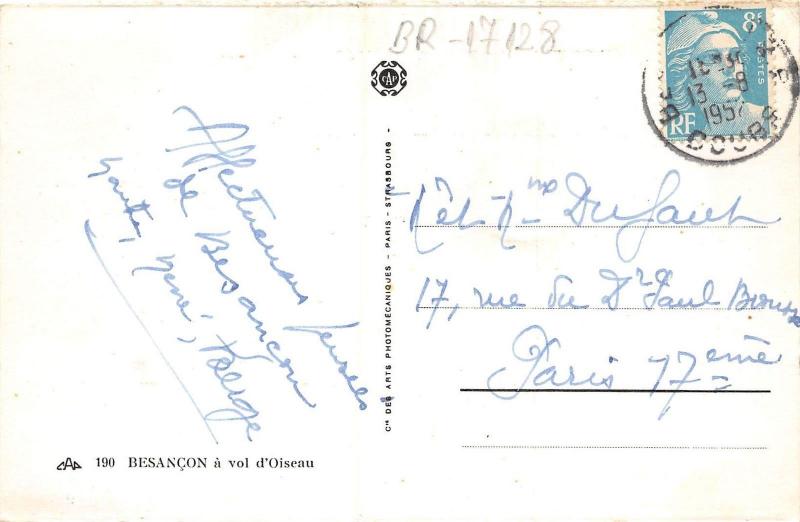 BR-17128
CAP
8F
POSTES
RF
13 - 8
1952
DOUBS
Affectueuses pensées,
de Besançon
René,
17, rue du Dr Paul Brousse
Paris 17ème
Cie DES ARTS PHOTOMÉCANIQUES - PARIS - STRASBOURG -
CAP 190 BESANÇON à vol d'Oiseau